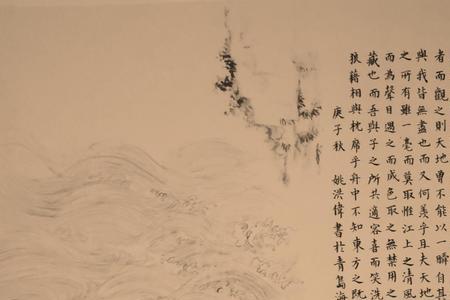 者而觀之則天地曾不能以一瞬自其
與我皆無盡也而又何羨乎且夫天地
之所有雖一毫而莫取惟江上之清風
而為聲目遇之而成色取之無禁用之
藏也而吾與子之所共適客喜而笑洗
狼籍相與枕席乎舟中不知東方之既
庚子秋 姚洪偉書於青島海